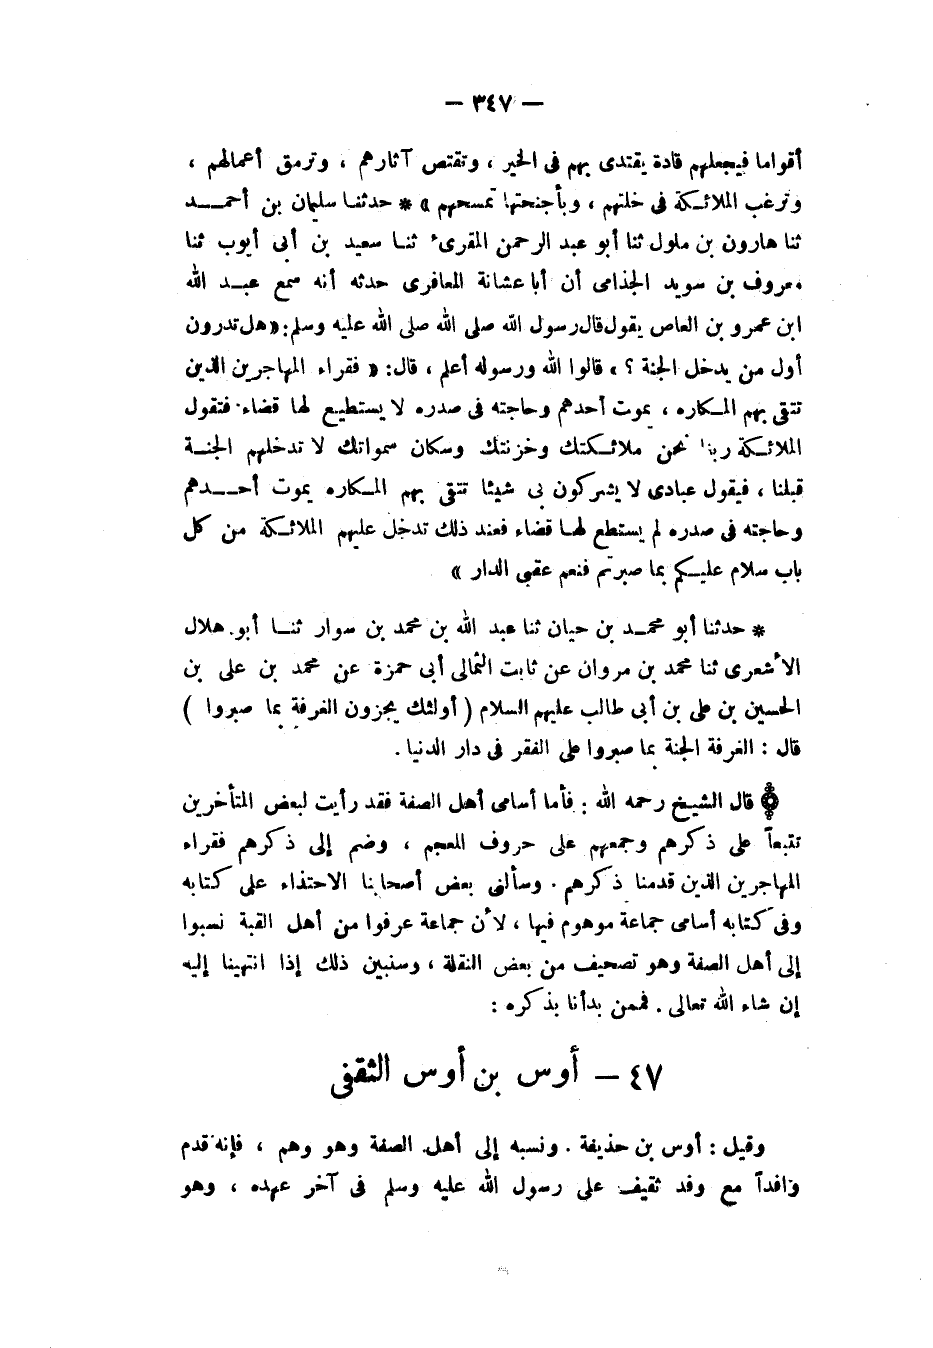 — ٣٤٧ —
أقواما فيجعلهم قادة يقتدى بهم فى الخير ، وتقتص آثارهم ، وترمق أعمالهم ،
وترغب الملائكة فى خلتهم ، وبأجنحتها تمسحهم » * حدثنا سليمان بن أحمد
ثنا هارون بن ملول ثنا أبو عبد الرحمن المقرىء ثنا سعيد بن أبى أيوب ثنا
معروف بن سويد الجذامى أن أبا عشانة المعافرى حدثه أنه سمع عبد الله
ابن عمرو بن العاص يقول قال رسول الله صلى الله صلى الله عليه وسلم : « هل تدرون
أول من يدخل الجنة ؟ » قالوا الله ورسوله أعلم ، قال : « فقراء المهاجرين الذين
تتقى بهم المكاره ، يموت أحدهم وحاجته فى صدره لا يستطيع لها قضاء . فتقول
الملائكة ربنا نحن ملائكتك وخزنتك وسكان سمواتك لا تدخلهم الجنة
قبلنا ، فيقول عبادى لا يشركون بى شيئا تتقى بهم المكاره يموت أحدهم
وحاجته فى صدره لم يستطع لها قضاء فعند ذلك تدخل عليهم الملائكة من كل
باب سلام عليكم بما صبرتم فنعم عقبى الدار »
* حدثنا أبو محمد بن حيان ثنا عبد الله بن محمد بن سوار ثنا أبو هلال
الأشعرى ثنا محمد بن مروان عن ثابت الثمالى أبى حمزة عن محمد بن على بن
الحسين بن على بن أبى طالب عليهم السلام ( أولئك يجزون الغرفة بما صبروا )
قال : الغرفة الجنة بما صبروا على الفقر فى دار الدنيا .
قال الشيخ رحمه الله : فأما أسامى أهل الصفة فقد رأيت لبعض المتأخرين
تتبعاً على ذكرهم وجمعهم على حروف المعجم ، وضم إلى ذكرهم فقراء
المهاجرين الذين قدمنا ذكرهم . وسألنى بعض أصحابنا الاحتذاء على كتابه
وفى كتابه أسامى جماعة موهوم فيها ، لأن جماعة عرفوا من أهل القبة نسبوا
إلى أهل الصفة وهو تصحيف من بعض النقلة ، وسنبين ذلك إذا انتهينا إليه
إن شاء الله تعالى . فممن بدأنا بذكره :
٤٧ — أوس بن أوس الثقفى
وقيل : أوس بن حذيفة . ونسبه إلى أهل الصفة وهو وهم ، فإنه قدم
وافداً مع وفد ثقيف على رسول الله عليه وسلم فى آخر عهده ، وهو